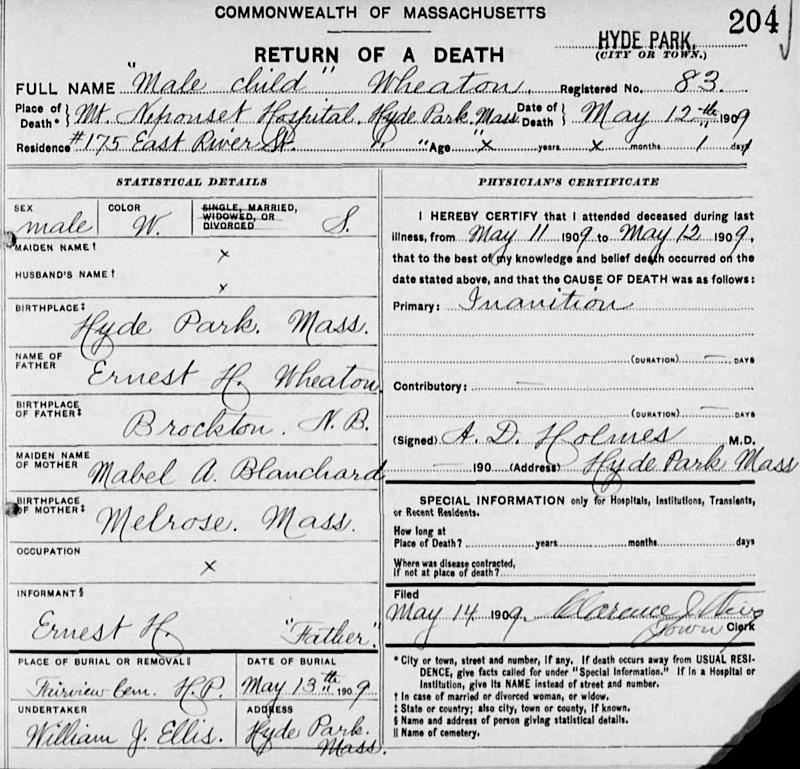 COMMONWEALTH OF MASSACHUSETTS
204
RETURN OF A DEATH
HYDE PARK,
(CITY OR TOWN.)
FULL NAME "Male child" Wheaton. Registered No. 83.
Place of Death* } Mt. Neponset Hospital. Hyde Park Mass. Date of Death } May 12th 1909
Residence #175 East River St. " " Age x years x months 1 days
STATISTICAL DETAILS
SEX
male
COLOR
W.
SINGLE, MARRIED, WIDOWED, OR DIVORCED
S.
MAIDEN NAME†
x
HUSBAND'S NAME†
x
BIRTHPLACE‡
Hyde Park. Mass.
NAME OF FATHER
Ernest H. Wheaton.
BIRTHPLACE OF FATHER‡
Brockton. N.B.
MAIDEN NAME OF MOTHER
Mabel A. Blanchard
BIRTHPLACE OF MOTHER‡
Melrose. Mass.
OCCUPATION
x
INFORMANT§
Ernest H. "Father".
PLACE OF BURIAL OR REMOVAL||
Fairview Cem. H.P.
DATE OF BURIAL
May 13th 1909
UNDERTAKER
William J. Ellis.
ADDRESS
Hyde Park.
Mass.
PHYSICIAN'S CERTIFICATE
I HEREBY CERTIFY that I attended deceased during last
illness, from May 11 1909 to May 12 1909,
that to the best of my knowledge and belief death occurred on the
date stated above, and that the CAUSE OF DEATH was as follows:
Primary: Inanition
(DURATION) — DAYS
Contributory: —
(DURATION) — DAYS
(Signed) A. D. Holmes M.D.
— 190 (Address) Hyde Park Mass
SPECIAL INFORMATION only for Hospitals, Institutions, Transients,
or Recent Residents.
How long at
Place of Death? years months days
Where was disease contracted,
If not at place of death?
Filed
May 14 1909. Clarence
Town Clerk
* City or town, street and number, if any. If death occurs away from USUAL RESI-
DENCE, give facts called for under "Special Information." If in a Hospital or
Institution, give its NAME instead of street and number.
† In case of married or divorced woman, or widow.
‡ State or country; also city, town or county, if known.
§ Name and address of person giving statistical details.
|| Name of cemetery.